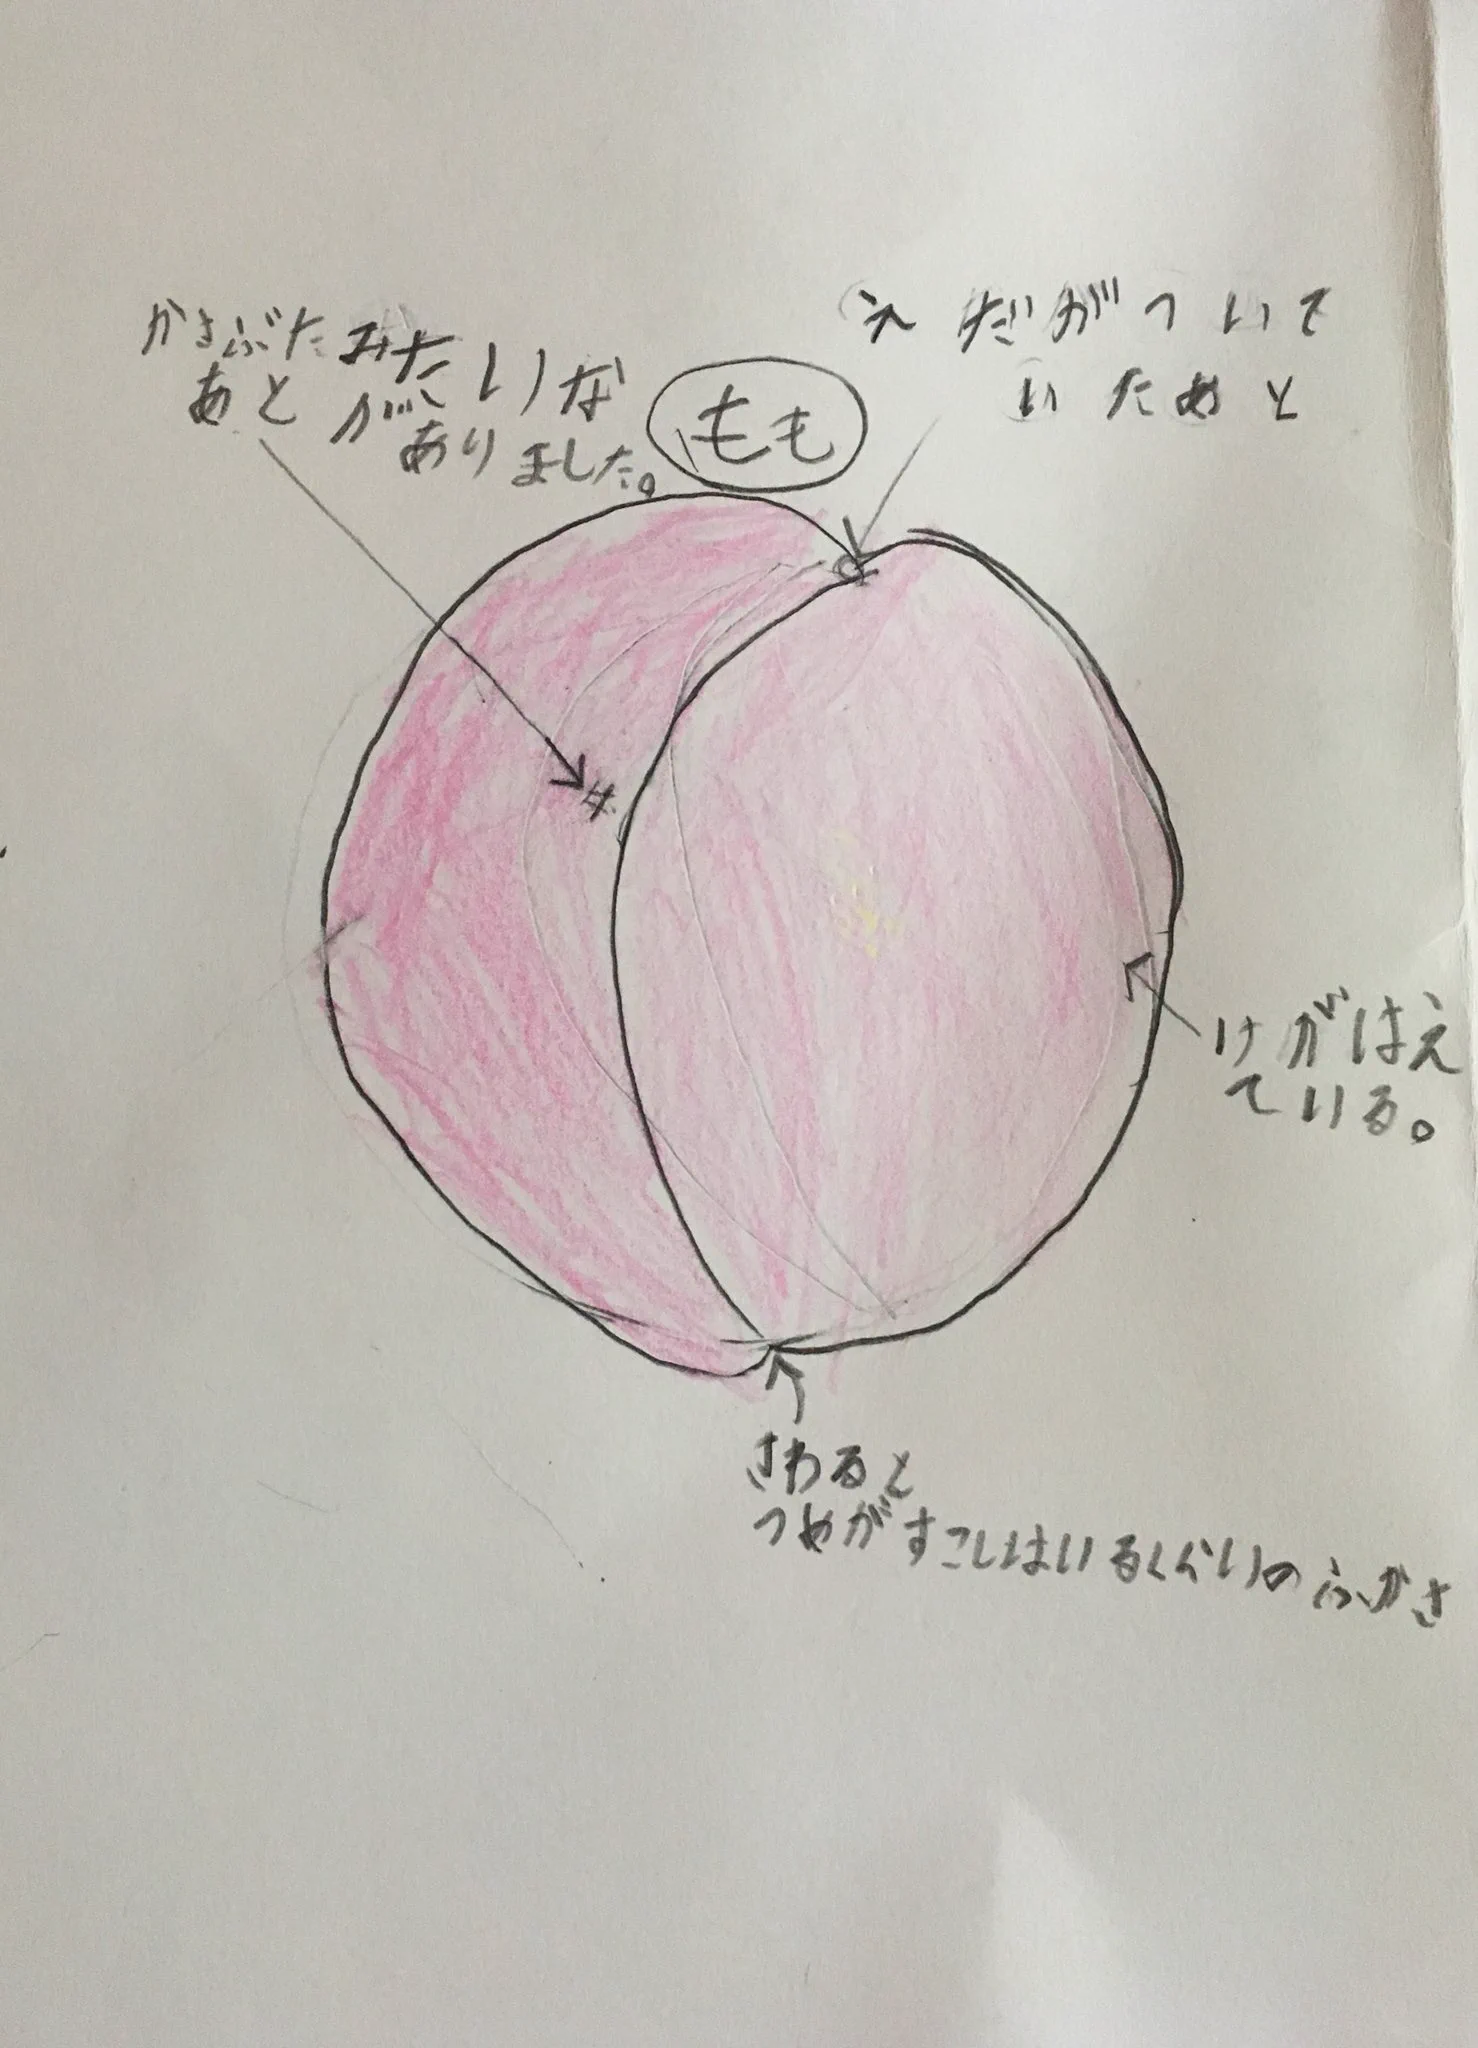 かさぶたみたいな
あとが
ありました。
もも
えだがついて
いたあと
けがはえ
ている。
さわると
つめがすこしはいるくらいのふかさ